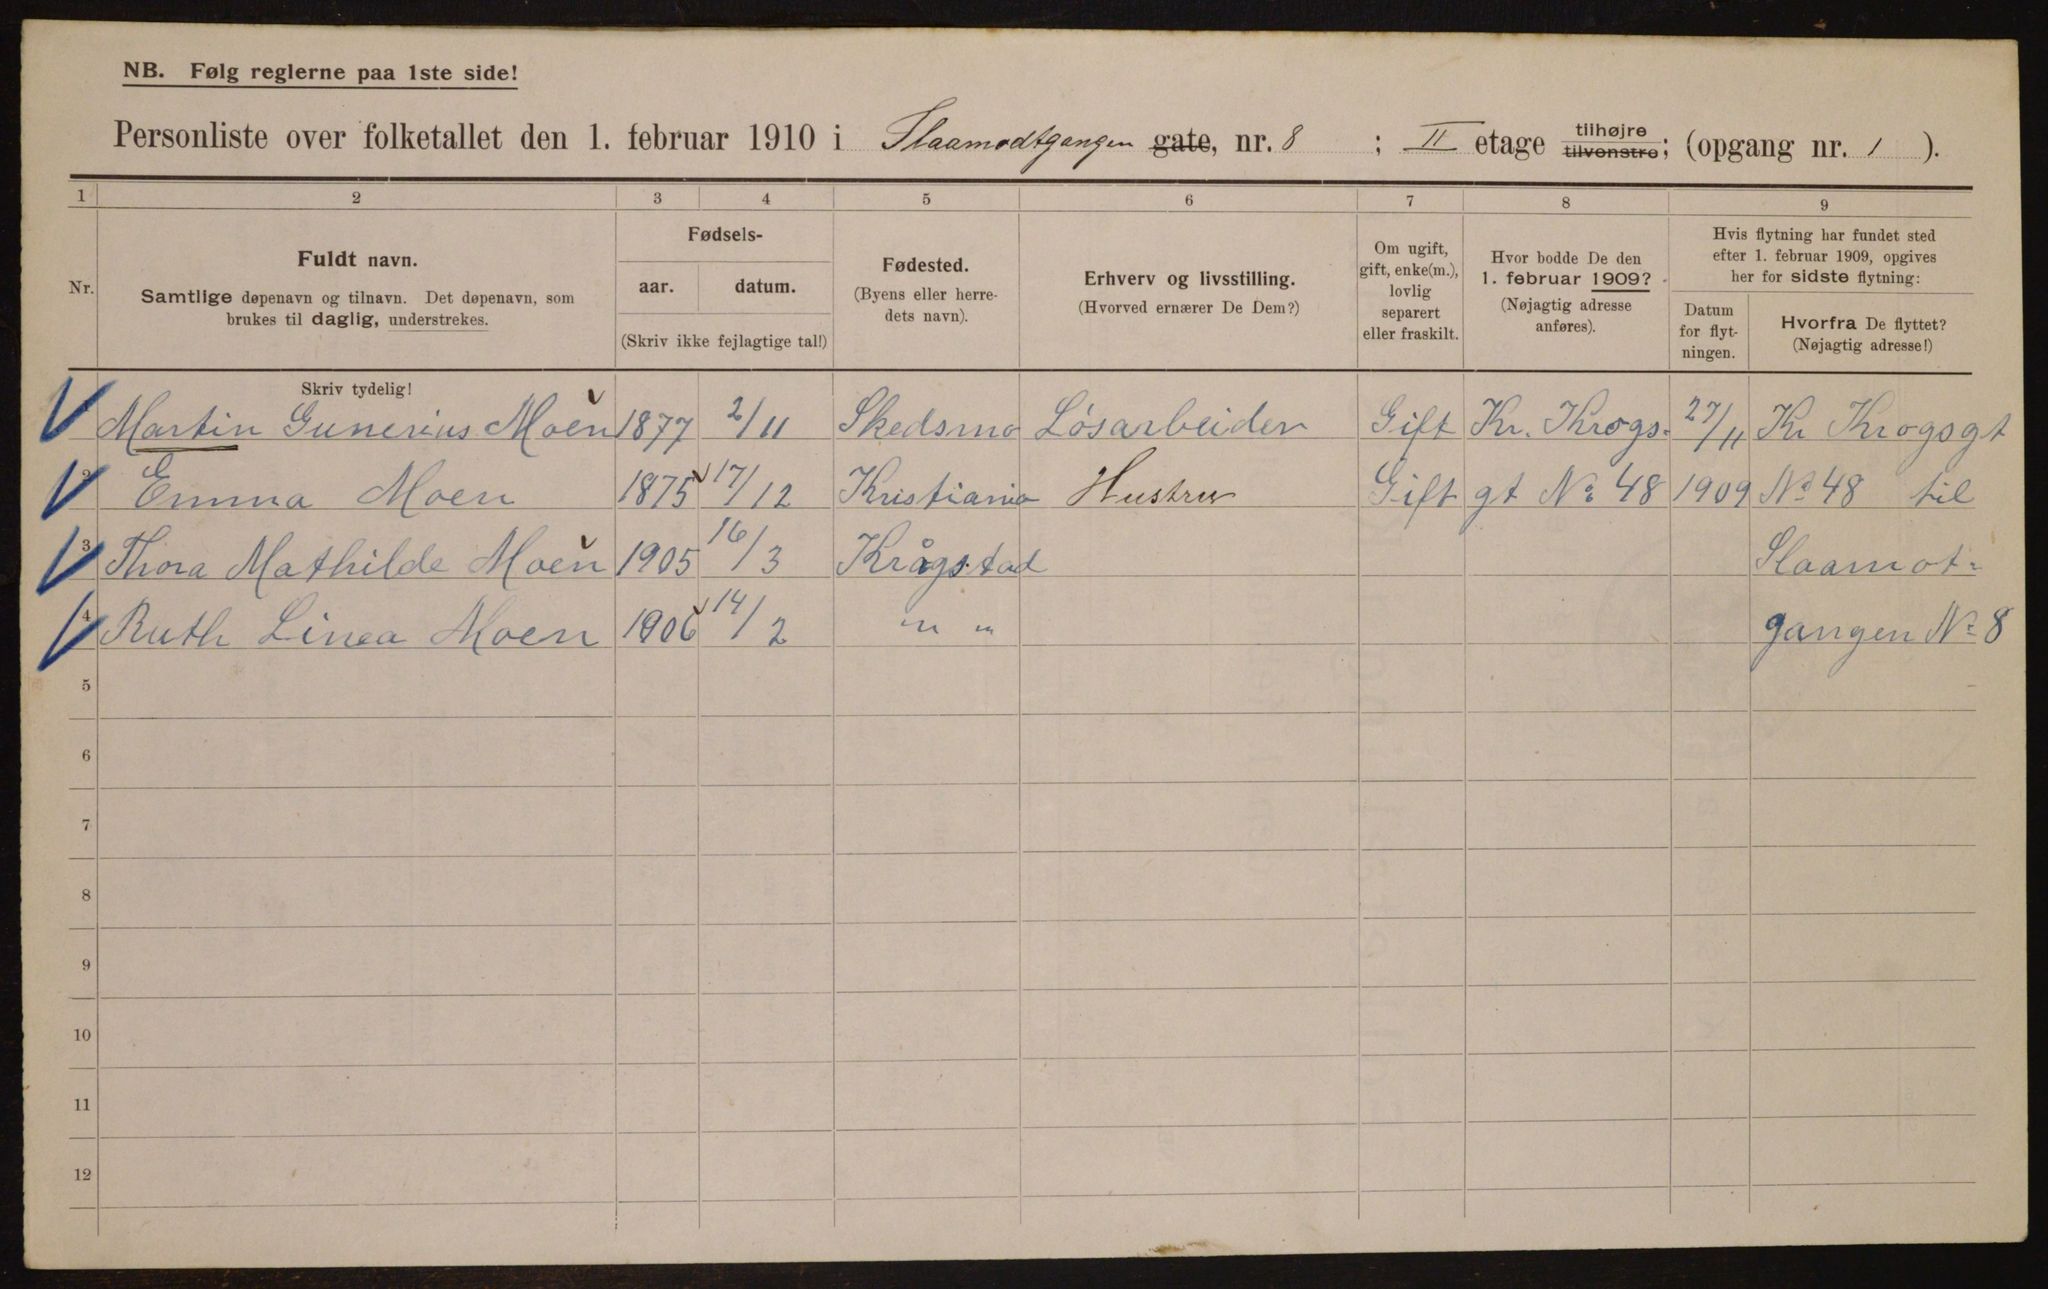 NB. Følg reglerne paa 1ste side!
Personliste over folketallet den 1. februar 1910 i Slaamodtgangen gate, nr. 8 ; II etage tilhøjre tilvenstre; (opgang nr. 1 ).
1 2 3 4 5 6 7 8 9
Nr.
Fuldt navn.
Samtlige døpenavn og tilnavn. Det døpenavn, som
brukes til daglig, understrekes.
Fødsels-
aar. datum.
(Skriv ikke fejlagtige tal!)
Fødested.
(Byens eller herre-
dets navn).
Erhverv og livsstilling.
(Hvorved ernærer De Dem?)
Om ugift,
gift, enke(m.),
lovlig
separert
eller fraskilt.
Hvor bodde De den
1. februar 1909?
(Nøjagtig adresse
anføres).
Hvis flytning har fundet sted
efter 1. februar 1909, opgives
her for sidste flytning:
Datum
for flyt-
ningen.
Hvorfra De flyttet?
(Nøjagtig adresse!)
Skriv tydelig!
Martin Gunerius Moen 1877 2/11 Skedsmo Løsarbeider Gift Kr. Krogs- 27/11 Kr Krogsgt
2 Emma Moen 1875 17/12 Kristiania Hustru Gift gt No 48 1909 No 48 til
3 Thora Mathilde Moen 1905 16/3 Krågstad Slaamot-
4 Ruth Linea Moen 1906 14/2 " " gangen No 8
5
6
7
8
9
10
11
12